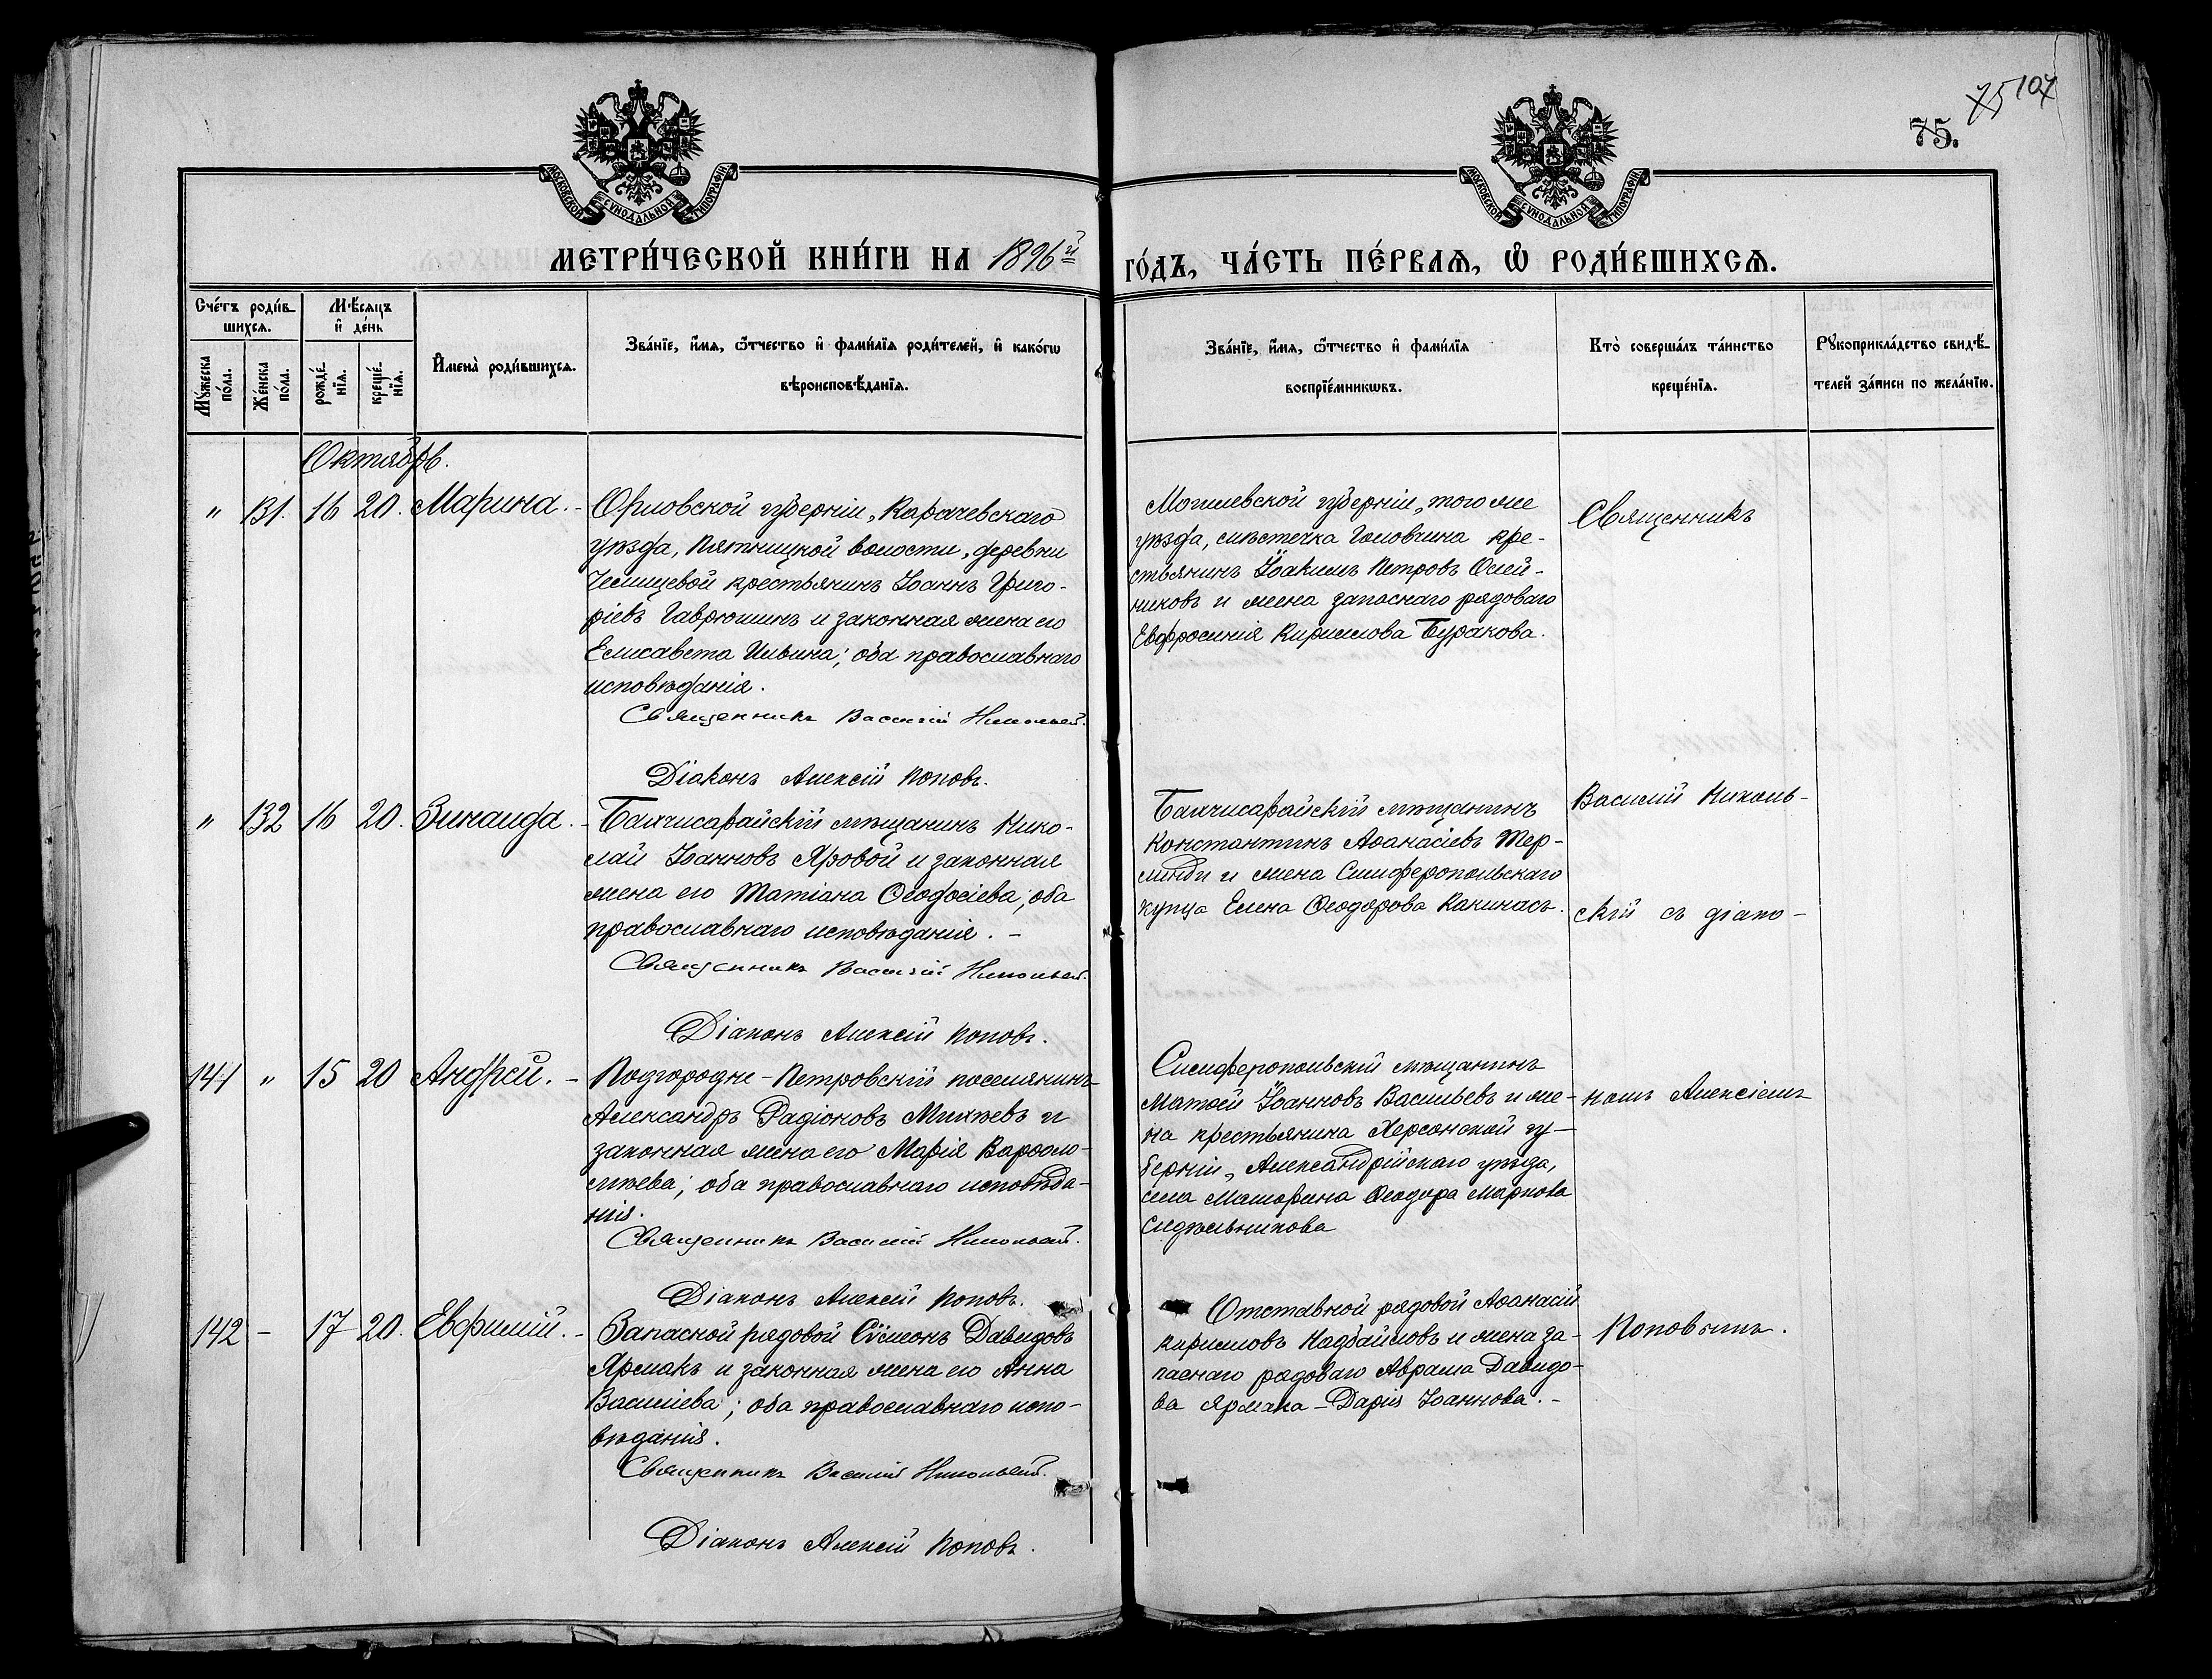 75 107
75.
МОСКОВСКОЙ СУНОДАЛЬНОЙ ТИПОГРАФІИ
МОСКОВСКОЙ СУНОДАЛЬНОЙ ТИПОГРАФІИ
МЕТРИ́ЧЕСКОЙ КНИ́ГИ НА 1896й
ГО́ДЪ, ЧА́СТЬ ПЕ́РВАѦ, Ѡ҆ РОДИ́ВШИХСѦ.
Сче́тъ роди́в-
шихсѧ.
Мѣ́сѧцъ
и҆ де́нь
Мꙋ́жеска
по́ла.
Же́нска
по́ла.
рожде́-
нїѧ.
креще́-
нїѧ.
И҆мена̀ роди́вшихсѧ.
Зва́нїе, и҆́мѧ, ѻ҆́тчество и҆ фами́лїѧ роди́телей, и҆ како́гѡ
вѣроисповѣ́данїѧ.
Зва́нїе, и҆́мѧ, ѻ҆́тчество и҆ фами́лїѧ
воспрїе́мникѡвъ.
Кто̀ соверша́лъ та́инство
креще́нїѧ.
Рꙋкоприкла́дство свидѣ́-
телей за́писи по жела́нїю.
Октябрь.
" 131. 16 20. Марина. -
Орловской губерніи, Карачевскаго
уѣзда, Пятницкой волости, деревни
крестьянинъ Іоаннъ Григо-
ріевъ Гаврюшинъ и законная жена его
Елисавета Ильина; оба православнаго
исповѣданія.
Священникъ Василій Никольскій.
Діаконъ Алексій Поповъ.
Могилевской губерніи, того же
уѣзда, мѣстечка Головчина кре-
стьянинъ Іоакимъ Петровъ Олей-
никовъ и жена запаснаго рядоваго
Евфросинія Кириллова Буракова.
Священникъ
" 132 16 20. Зинаида. -
Бахчисарайскій мѣщанинъ Нико-
лай Іоанновъ Яровой и законная
жена его Татіана Ѳеодосіева; оба
православнаго исповѣданія. -
Священникъ Василій Никольскій.
Діаконъ Алексій Поповъ.
Бахчисарайскій мѣщанинъ
Константинъ Аѳанасіевъ Тер-
линди и жена Симферопольскаго
купца Елена Ѳеодорова Какинасъ.
Василій Николь-
скій съ діако-
141 " 15 20 Андрей. -
Подгородне-Петровскій поселянинъ
Александръ Радіоновъ Михѣевъ и
законная жена его Марія Варѳоло-
мѣева; оба православнаго исповѣда-
нія.
Священникъ Василій Никольскій.
Діаконъ Алексій Поповъ.
Симферопольскій мѣщанинъ
Матѳей Іоанновъ Васильевъ и же-
на крестьянина Херсонской гу-
берніи, Александрійскаго уѣзда,
села Ѳеодора Маркова
Сидѣльникова
номъ Алексіемъ
142 - 17 20. Евфимій. -
Запасной рядовой Сѵмеонъ Давидовъ
Ярмакъ и законная жена его Анна
Василіева; оба православнаго испо-
вѣданія.
Священникъ Василій Никольскій.
Діаконъ Алексій Поповъ.
Отставной рядовой Аѳанасій
Кирилловъ и жена за-
паснаго рядоваго Авраама Давидо-
ва Ярмака - Дарія Іоаннова. -
Поповымъ.